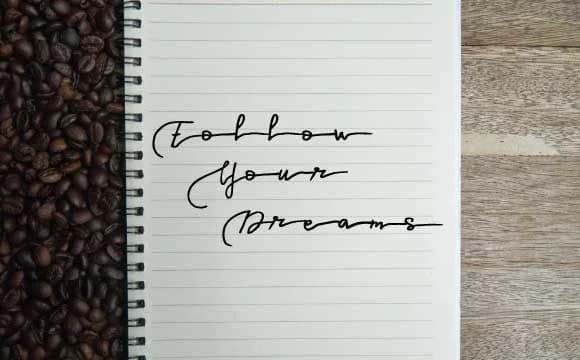 Follow
Your
Dreams